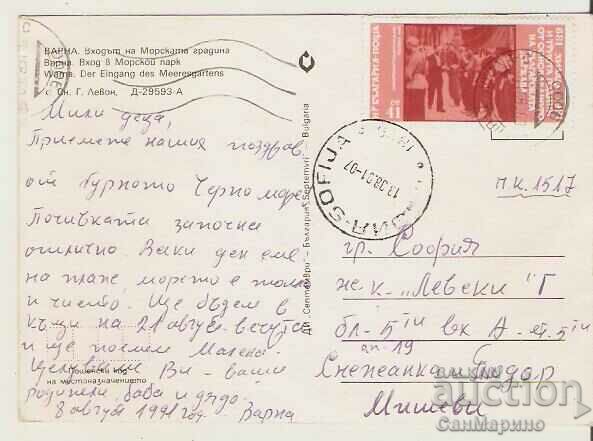 ВАРНА. Входът на Морската градина
Варна. Вход в Морской парк
Warna. Der Eingang des Meeresgartens
с Сн. Г. Левон. Д-29593-А
Мили деца,
Приемете нашия поздрав
от бурното Черно море.
Почивката започна
отлично. Всеки ден сме
на плаж, морето е топло
и чисто. Ще бъдем в
къщи на 21 август вечерта
и ще поемем
Целуваме Ви - ваши
родители, баба и дядо.
8 август 1991 год - Варна
Пощенски код
на местоназначението
ДП „Септември" – България „Septemvri" – Bulgaria
БЪЛГАРИЯ·ПОЩА
СОФИЯ-SOFIJA
13.08.91-07
п.к. 1517
гр. София
ж.к. „Левски" Г
бл-5ти вх А. ет. 5ти
ап-19
Снежанка и Тодор
Мишеви
auction
СанМарино